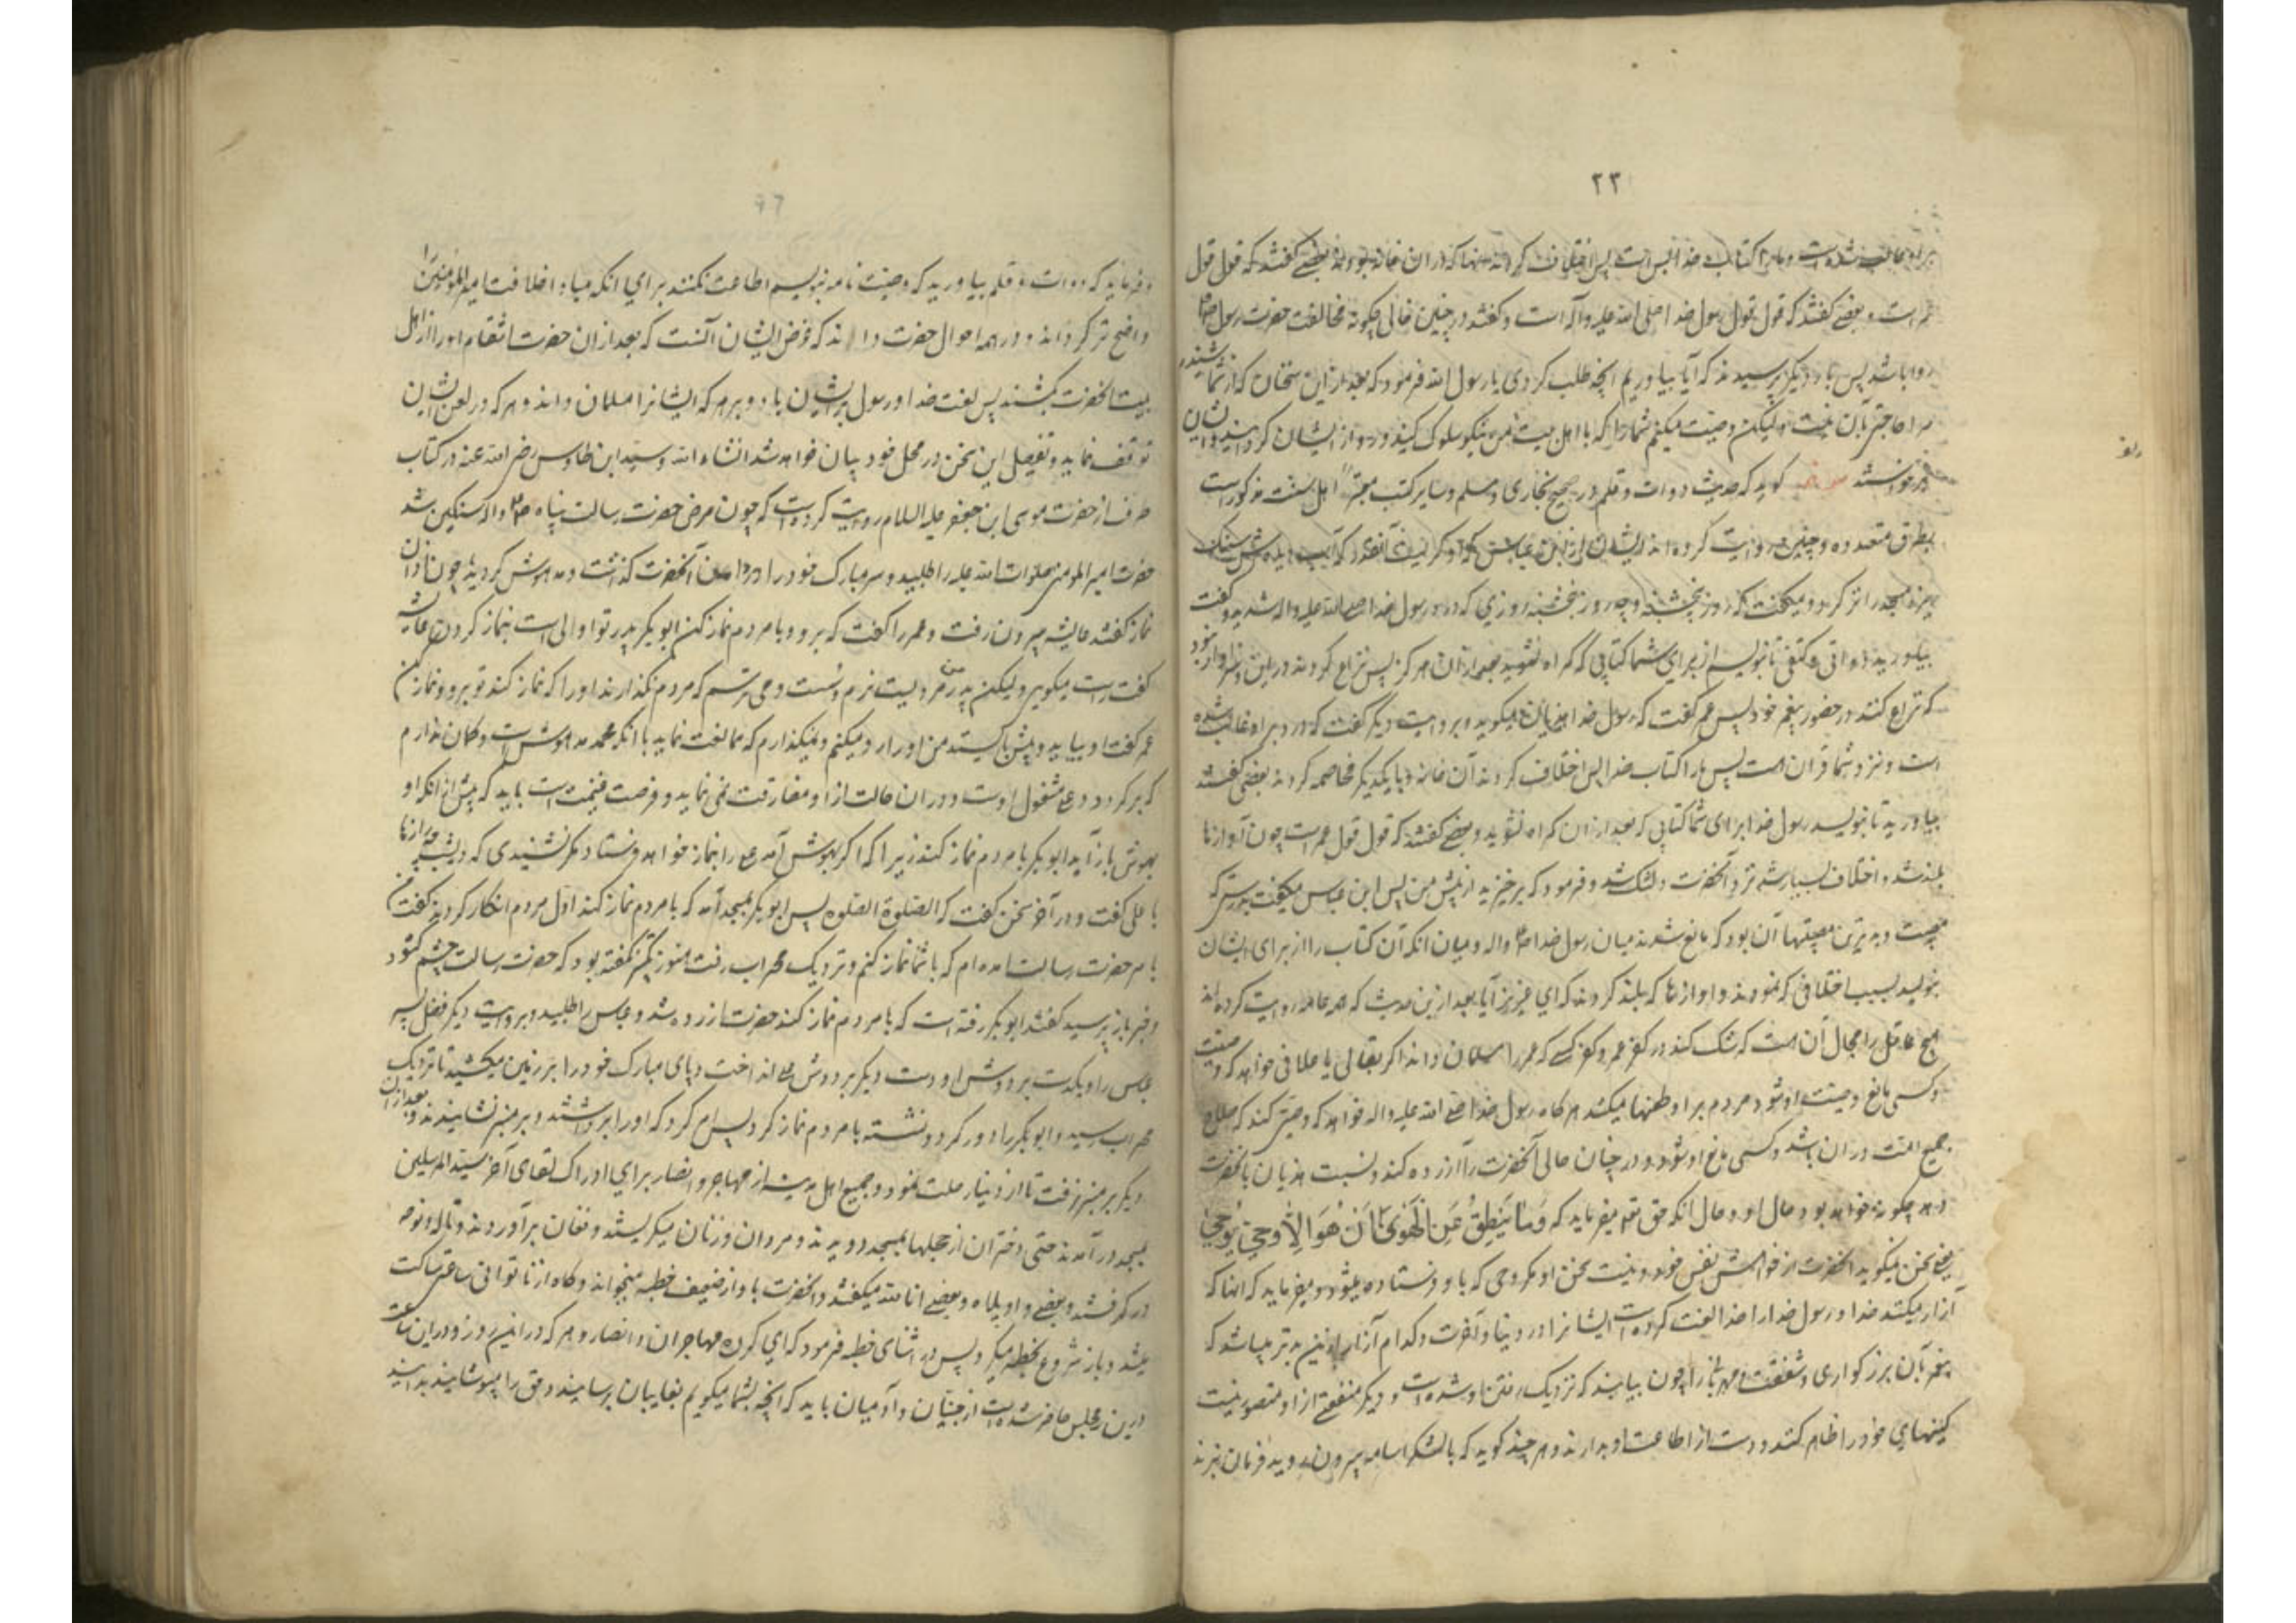 ۲۳
براو غالب شده است و ما را کتاب خدا بس است پس اختلاف کردند آنها که در آن خانه بودند بعضی گفتند که قول قول
عمر است و بعضی گفتند که قول قول رسول خدا صلی الله علیه وآله است و گفتند در چنین حالی چگونه مخالفت حضرت رسول ص
روا باشد پس بار دیگر پرسیدند که آیا بیاوریم آنچه طلب کردی یا رسول الله فرمود که بعد از این سخنان که از شما شنیدم
مرا حاجتی بآن نیست ولیکن وصیت میکنم شما را که با اهل بیت من نیکو سلوک کنید و رو از ایشان گردانید و ایشان
برخواستند مولف گوید که حدیث دوات و قلم در صحیح بخاری و مسلم و سایر کتب معتبره اهل سنت مذکور است
بطرق متعدده و چنین روایت کرده اند ایشان از ابن عباس که او گریست آنقدر که آب دیده اش سنک
ریزه مسجد را تر کرد و میگفت که روز پنجشنبه و چه روز پنجشنبه روزی که درد رسول خدا صلی الله علیه واله شدید شد و گفت
بیاورید دواتی و کتفی تا بنویسم از برای شما کتابی که گمراه نشوید بعد از آن هرگز پس نزاع کردند در این و سزاوار نبود
که نزاع کنند در حضور پیغمبر خود پس عمر گفت که رسول خدا هذیان میگوید و بروایت دیگر گفت که درد بر او غالب شده
است و نزد شما قرآن هست پس ما را کتاب خدا بس اختلاف کردند آن خانه و با یکدیگر مخاصمه کردند بعضی گفتند
بیاورید تا بنویسد رسول خدا برای شما کتابی که بعد از آن گمراه نشوید و بعضی گفتند که قول قول عمر است چون آوازها
بلند شد و اختلاف بسیار شد نزد آنحضرت دلتنک شد و فرمود که برخیزید از پیش من پس ابن عباس میگفت بدرستی که
مصیبت و بدترین مصیبتها آن بود که مانع شدند میان رسول خدا ص واله و میان آنکه آن کتاب را از برای ایشان
بنویسد بسبب اختلافی که نمودند و آوازها که بلند کردند که ای عزیز آیا بعد ازین حدیث که همه عامه روایت کرده اند
هیچ عاقل را مجال آن هست که شک کند در کفر عمر و کفر کسی که عمر را مسلمان داند اگر بقالی یا علافی خواهد که وصیت
و کسی مانع وصیت او شود مردم بر او طعنها میکنند هرگاه رسول خدا صلی الله علیه واله خواهد که وصیتی کند که صلاح
جمیع امت در آن باشد و کسی مانع او شود و در چنان حالی آنحضرت را آزرده کند و نسبت هذیان بآنحضرت
دهد چگونه خواهد بود حال او و حال آنکه حق تعالی میفرماید که وَما يَنطِقُ عَنِ الْهَوىٰ اِنْ هُوَ اِلّا وَحیٌ يُوحیٰ
یعنی سخن نمیگوید آنحضرت از خواهش نفس خود و نیست سخن او مگر وحی که باو فرستاده میشود و میفرماید که آنها که
آزار میکنند خدا و رسول خدا را خدا لعنت کرده است ایشانرا در دنیا و آخرت و کدام آزار ازین بدتر میباشد که
پیغمبر بآن بزرکواری و شفقت و مهربانی را چون بیابند که نزدیک رفتن او شده است و دیگر منفعتی از او متصور نیست
کینهای خود را ظاهر کنند و دست از اطاعت او بدارند و هر چند گوید که با لشکر اسامه بیرون روید فرمان نبرند
و فرماید که دوات و قلم بیاورید که وصیت نامه بنویسم اطاعت نکنند برای آنکه مبادا خلافت امیر المومنین را
واضح تر گرداند و در همه احوال حضرت دانند که غرض ایشان آنست که بعد از آن حضرت انتقام او را از اهل
بیت آنحضرت بکشند پس لعنت خدا و رسول بر ایشان باد و بر هر که ایشانرا مسلمان داند و هر که در لعن ایشان
توقف نماید و تفصیل این سخن در محل خود بیان خواهد شد انشاء الله و سید ابن طاوس رضی الله عنه در کتاب
طرف از حضرت موسی ابن جعفر علیه السلام روایت کرده است که چون مرض حضرت رسالت پناه ص واله سنکین شد
حضرت امیر المومنین صلوات الله علیه را طلبید و سر مبارک خود را در دامن آنحضرت گذاشت و مدهوش گردید چون اذان
نماز گفتند عایشه بیرون رفت و عمر را گفت که برو و با مردم نماز کن ابوبکر پدر تو اولی است بنماز کردن عایشه
گفت راست میگویی ولیکن پدر من مردیست نرم و سست و می ترسم که مردم نگذارند او را که نماز کند تو برو و نماز کن
عمر گفت او بیاید و پیش بایستد من او را رد میکنم و نمیگذارم که ممانعت نماید با آنکه محمد مدهوش است و گمان ندارم
که برگردد و علی مشغول اوست و در آن حالت از او مفارقت نمی نماید و فرصت غنیمت است باید که پیش از آنکه او
بهوش بازآید ابوبکر با مردم نماز کند زیرا که اگر بهوش آمد علی را بنماز خواهد فرستاد مگر نشنیدی که دیشب چه رازها
با علی گفت و در آخر سخن گفت که الصلوة الصلوة پس ابوبکر بمسجد آمد که با مردم نماز کند اول مردم انکار کردند گفت
بامر حضرت رسالت آمده ام که با شما نماز کنم و نزدیک محراب رفت هنوز تکبیر نگفته بود که حضرت رسالت چشم گشود
و خبر باز پرسید گفتند ابوبکر رفته است که با مردم نماز کند حضرت آزرده شد و عباس را طلبید و بروایت دیگر فضل پسر
عباس را و یکدست بر دوش او و دست دیگر بر دوش علی انداخت و پای مبارک خود را بر زمین میکشید تا نزدیک
محراب رسید و ابوبکر را دور کرد و نشسته با مردم نماز کرد پس امر کرد که او را برداشتند و بر منبر نشانیدند و بعد از آن
دیگر بر منبر نرفت تا از دنیا رحلت نمود و جمیع اهل مدینه از مهاجر و انصار برای ادراک لقای آخر سید المرسلین
بمسجد درآمدند حتی دختران از حجلها بمسجد دویدند و مردان و زنان میگریستند و فغان برآوردند و ناله و نوحه
در گرفتند و بعضی واویلاه و بعضی انا لله میگفتند و آنحضرت بآواز ضعیف خطبه میخواند و گاه از ناتوانی ساعتی ساکت
میشد و باز شروع بخطبه میکرد پس در اثنای خطبه فرمود که ای گروه مهاجران و انصار و هر که در این روز و در این ساعت
درین مجلس حاضر شده است از جنیان و آدمیان باید که آنچه بشما میگویم بغایبان برسانید و حق را مپوشانید بدانید